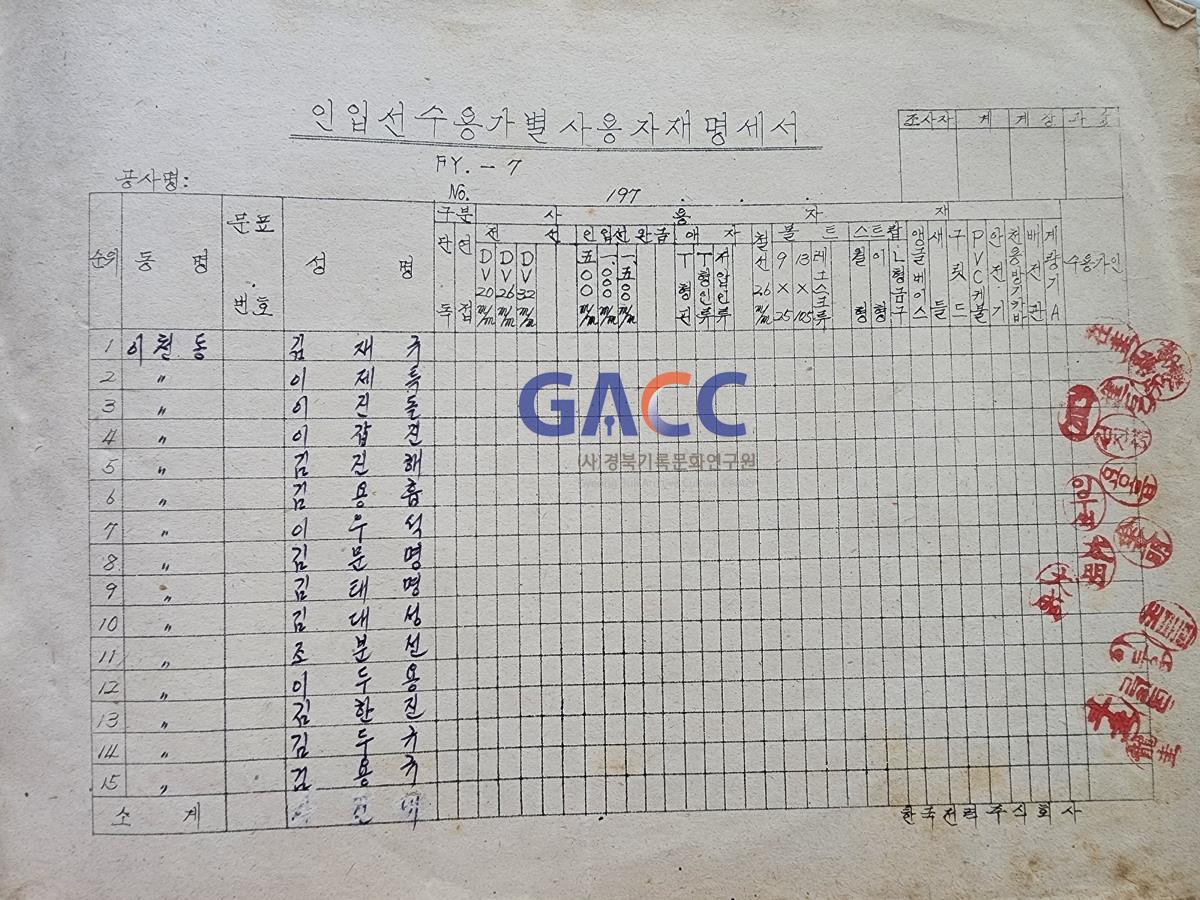 인입선수용가별사용자재명세서
조사자 계 계장 과장
FY. - 7
공사명:
No. 197 . . .
순위 동명 문표번호 성명 구분 사용자재 수용가인
단독 연접 전선 인입선완금 애자 철선 볼트 스트랍 앵글베이스 새들 구릿드 PVC케불 안전기 전용방기카바 배전관 계량기A
DV20m/m DV26m/m DV32m/m 五○○m/m 一.○○○m/m 一.五○○m/m T형핀 T형인류 저압인류 2.6m/m 9×25 13×105 레그스크류 월형 이형 ㄴ형금구
1 이천동 김재구
2 〃 이제특
3 〃 이진돌
4 〃 이갑진
5 〃 김진해
6 〃 김용흡
7 〃 이우석
8 〃 김문명
9 〃 김태명
10 〃 김대성
11 〃 조분선
12 〃 이두용
13 〃 김한진
14 〃 김두규
15 〃 김용구
소계
한국전력주식회사
GACC
(사)경북기록문화연구원